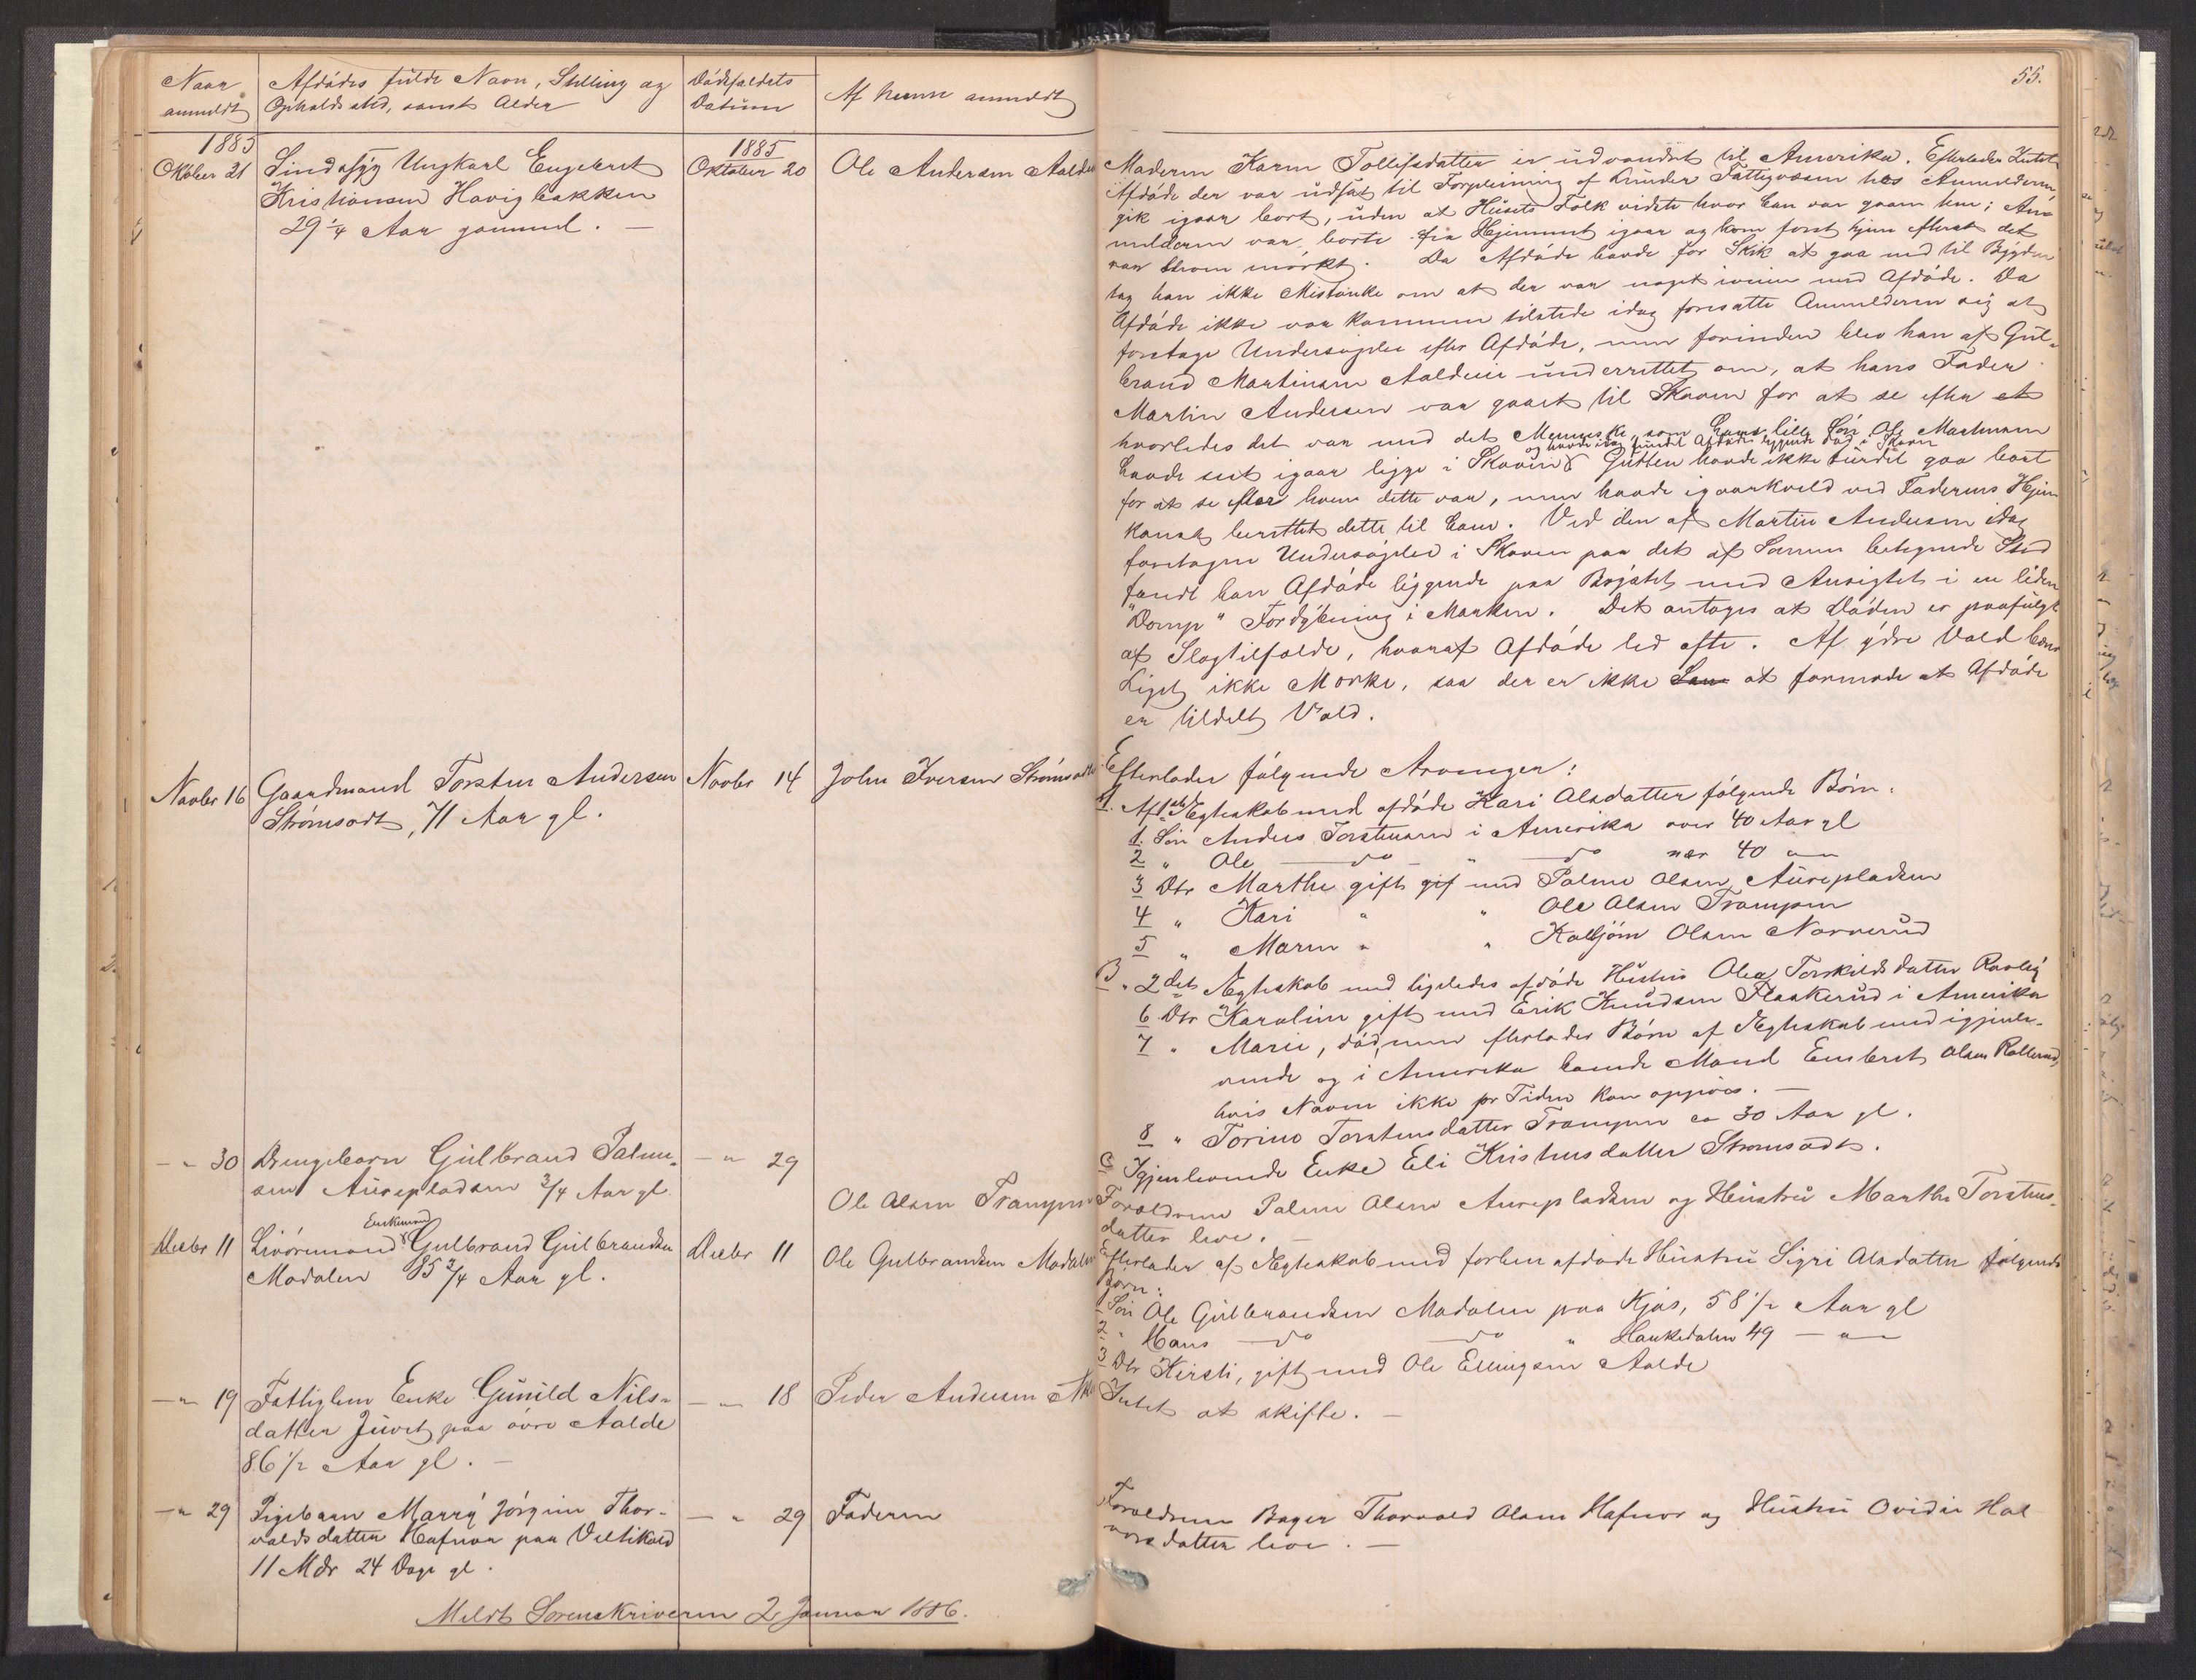 Naar
anmeldt
Afdødes fulde Navn, Stilling og
Opholdssted, samt Alder
Dødsfaldets
Datum
Af hvem anmeldt
1885
Oktober 21
Sindssyg Ungkarl Engebret
Kristiansen Havigbakken
29 1/4 Aar gammel. —
1885
Oktober 20
Ole Andersen Aalde
Novbr 16
Gaardmand Torsten Andersen
Strømsodt, 71 Aar gl.
Novbr 14
John Iversen Strømsodt
— " 30
Drengebarn Gulbrand Palme-
sen Aurepladsen 3/4 Aar gl.
— " 29
Ole Olsen Trampen
Decbr 11
Enkemand
Livøremand Gulbrand Gulbrandsen
Modalen 85 3/4 Aar gl.
Decbr 11
Ole Gulbrandsen Modalen
— " 19
Fattiglem Enke Gunild Nils-
datter Juvet paa øvre Aalde
86 1/2 Aar gl. —
— " 18
Peder Andersen
— " 29
Pigebarn Marry Jørgine Thor-
valdsdatter Hafnor paa Veltikold
11 Mdr 24 Dage gl.
— " 29
Faderen
Meldt Sorenskriveren 2 Januar 1886.
55.
Moderen Karen Tollefsdatter er udvandret til Amerika. Efterlader Intet.
Afdøde der var udsat til Forpleining af Krinder Fattigvæsen hos Anmelderen
gik igaar bort, uden at Husets Folk vidste hvor han var gaaen hen; An-
melderen var borte fra Hjemmet igaar og kom først hjem efterat det
var bleven mørkt. Da Afdøde havde for Skik at gaa ned til Bygden
tog han ikke Mistanke om at der var noget iveien med Afdøde. Da
Afdøde ikke var kommen tilstede idag foresatte Anmelderen sig at
foretage Undersøgelse efter Afdøde, men forinden blev han af Gul-
brand Martinsen Aaldeie underrettet om, at hans Fader
Martin Andersen var gaaet til Skoven for at se efter et
hvorledes det var med det Menneske, som hans lille Søn Ole Martinsen
og havde idag fundet Afdøde liggende død i Skoven
havde seet igaar ligge i Skoven. Gutten havde ikke turdet gaa bort
for at se efter hvem dette var, men havde igaarkveld ved Faderens Hjem
komst berettet dette til ham. Ved den af Martin Andersen idag
foretagne Undersøgelse i Skoven paa det af Sønnen betegnede Sted
fandt han Afdøde liggende paa Brystet med Ansigtet i en liden
"Domp" Fordybning i Marken. Det antages at Døden er paafulgt
af Slagtilfælde, hvoraf Afdøde led ofte. Af ydre Vold bær
Liget ikke Mærke, saa der er ikke at formode at Afdøde
er tildelt Vold.
Efterlader følgende Arvinger:
A. Af 1ste Ægteskab med afdøde Kari Olsdatter følgende Børn:
1. Søn Anders Torstensen i Amerika over 40 Aar gl
2 " Ole — do — " — do nær 40 — " —
3 Dtr Marthe gift gif med Palme Olsen Aurepladsen
4 " Kari " " Ole Olsen Trampen
5 " Maren " " Kolbjørn Olsen Norrerud
B. " 2det Ægteskab med ligeledes afdøde Hustru Olea Torkildsdatter Ravlig
6 Dtr Karoline gift med Erik Knudsen Flaskerud i Amerika
7 " Marie, død, men efterlader Børn af Ægteskab med igjenle-
vende og i Amerika boende Mand Embret Olsen Rallerud,
hvis Navne ikke pr Tiden kan opgives. —
8 " Torine Torstensdatter Trampen ca 30 Aar gl.
C Igjenlevende Enke Eli Kristensdatter Strømsodt.
Forældrene Palme Olsen Aurepladsen og Hustru Marthe Torstens-
datter leve. —
Efterlader af Ægteskab med forhen afdøde Hustru Sigri Olsdatter følgende
Børn:
1 Søn Ole Gulbrandsen Modalen paa Kjøs, 58 1/2 Aar gl
2 " Hans — do — do " Haukedalen 49 — " —
3 Dtr Kirsti, gift med Ole Ellingsen Aalde
Intet at skifte. —
Forældrene Bager Thorvald Olsen Hafnor og Hustru Ovidie Hal-
vorsdatter leve. —